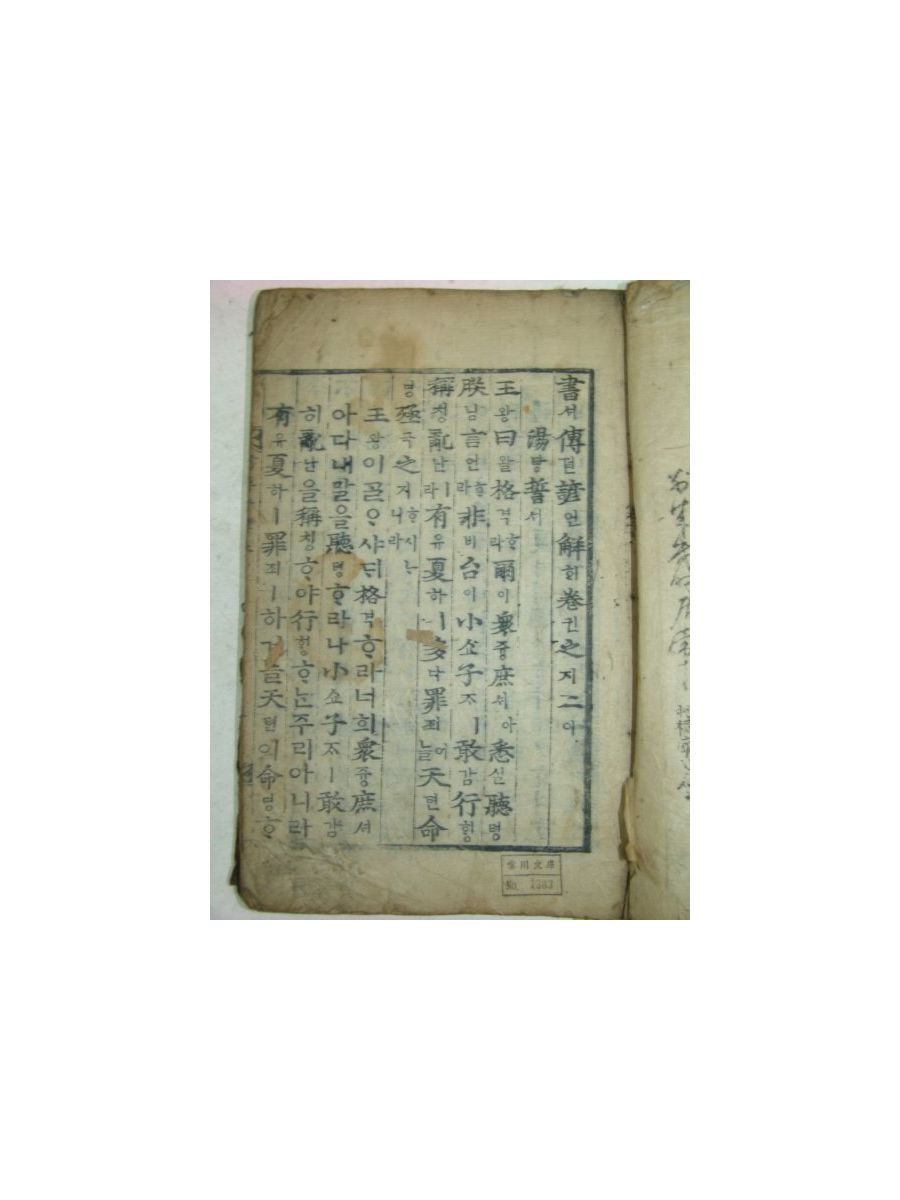 書셔傳뎐諺언解ᄒᆡ卷권之지二이
湯탕誓셔
王왕曰왈格격ᄒᆞ라爾이衆즁庶셔아悉실聽텽
朕딤言언ᄒᆞ라非비台이小쇼子ᄌᆞㅣ敢감行ᄒᆡᆼ
稱칭亂난이라有유夏하ㅣ多다罪죄어늘天텬命
명殛극之지ᄒᆞ시ᄂᆞ니라
王왕이ᄀᆞᆯᄋᆞ샤ᄃᆡ格격ᄒᆞ라너희衆즁庶셔
아다내말을聽텽ᄒᆞ라나小쇼子ᄌᆞㅣ敢감
히亂난을稱칭ᄒᆞ야行ᄒᆡᆼᄒᆞᄂᆞᆫ주리아니라
有유夏하ㅣ罪죄ㅣ하거늘天텬이命명ᄒᆞ
文庫
No 1383